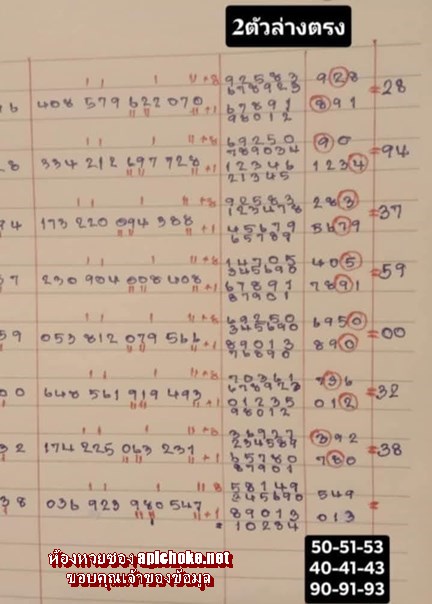 2ตัวล่างตรง
92583 928
678923 = 28
6 408 579 622 070 67891 891
98012
69250 90
789034 = 94
8 334 212 697 728 12346 1234
21345
92583 283
123478 = 37
4 173 220 094 388 45679 5679
65789
14705 405
345690 = 59
7 230 904 008 408 67891 7891
87901
69250 6950
345690 = 00
59 053 812 079 566 89013 890
76890
70361 736
678923 = 32
00 648 561 919 493 01235 012
98012
36927 392
234589 = 38
32 174 225 063 231 65780 780
87901
58149 549
345690 =
38 036 923 980 547 89013 013
10284
ห้องหวยซอง apichoke.net
ขอบคุณเจ้าของข้อมูล
50-51-53
40-41-43
90-91-93